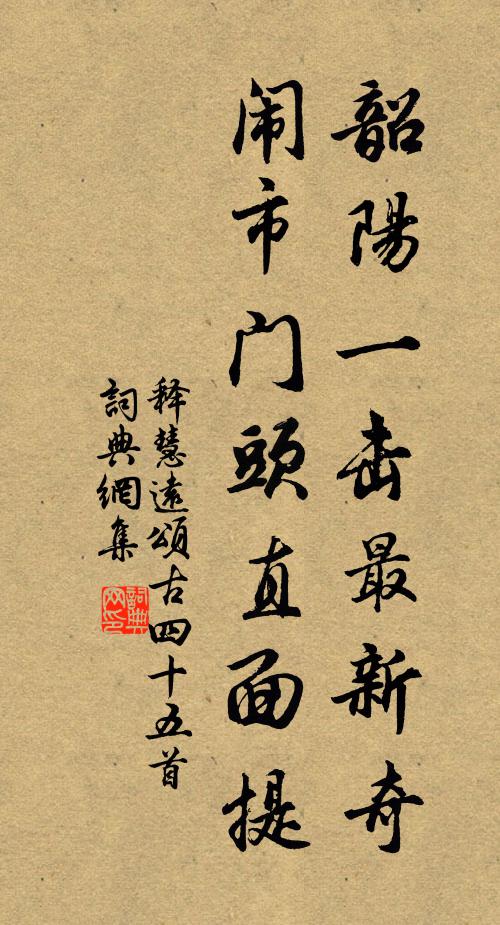 韶陽一击最新奇
闹市门頭直面提
释慧遠頌古四十五首
詞典網集
詞典网印